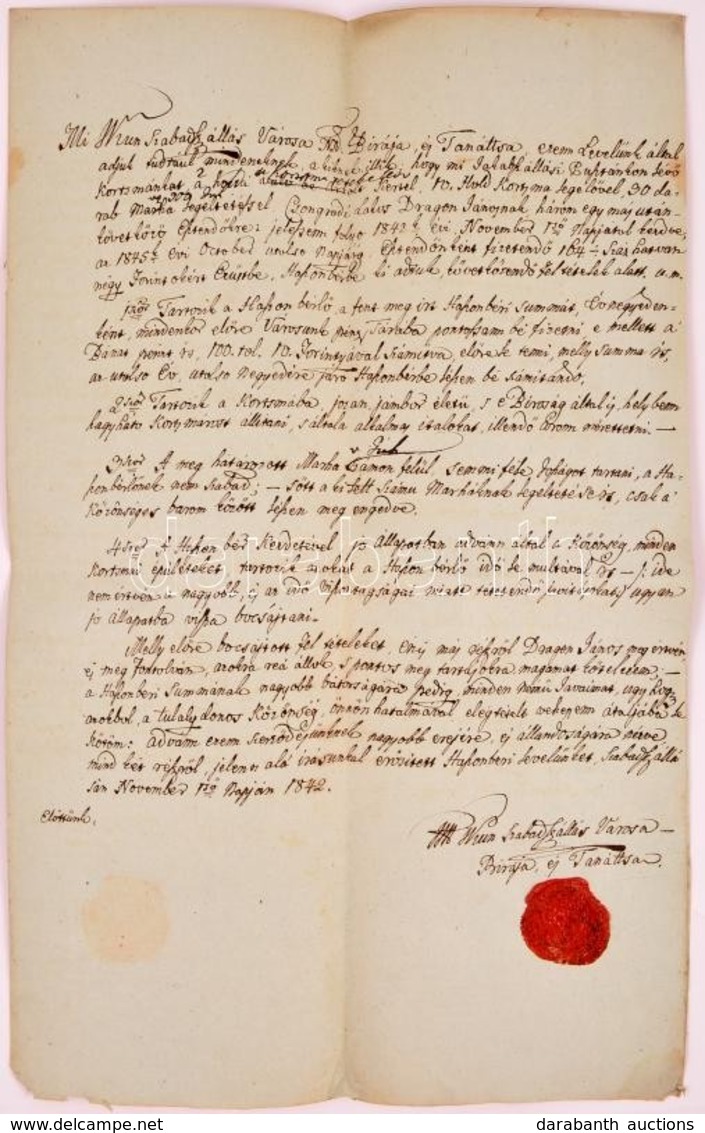 Mi Kiun Szabadszállás Városa Fő Birája, és Tanáltsa, ezem Levelünk által
adjuk tudtául mindeneknek, a kiknek illik; hogy mi Jakabszállási Pusztánkon lévő
Kortsmánkat 2 holdi Kertel, 10. Hold Kortsma legelővel, 30 da-
rab Marha legeltetéssel Csongrádi lakos Dragon Jánosnak három egy más után-
következő Esztendőkre: jelessem folyó 1842k évi November 1ső Napjátul kezdve,
az 1845k évi October utolso Napjáig, Esztendőnként fizetendő 164 – Száz hatvan
négy Forintokért Ezüstbe, Haszonbérbe ki adjuk, következendő fel tételek alatt, u.m.
1ször Tartozik a Haszonbérlő, a fent meg irt Haszonbéri Summát, Évnegyeden-
ként, mindenkor előre Városunk pénz Tárába pontossam bé fizetni, e mellett a'
Bánat pénzt is, 100.tol. 10. Forintyával számitva, előre le tenni, melly summa is,
az utolsó Év, utolsó negyedére járó Haszonbérbe lészen bé számitandó,
2szor Tartozik a Kortsmába, jozan, jámbor életű, s e Biróság által is, helyben
hagyható Kortsmárost állitani, s általa alkalmas italokat, illendő áron méretetni. –
3szor A meg határozott Marha Számon felül, semmi féle Jószágot tartani, a Ha-
szonbérlőnek nem szabad; – sőtt a ki tett Számu Marháknak legeltetése is, csak a'
Közönséges barom között lészen meg engedve.
4szer A Haszon bér Kezdetével jo állapotban adván által a Közönség, minden
Kortsmai épületeket tartozik azokat a Haszon bérlő idő le multával is – /: ide
nem értvén a nagyobb, és az idő viszontagságai miatt tétetendő javitásokat:/ ugyan
jo állapatba vissza bocsájtani.
Melly előre bocsájtott fel tételeket, én is más részről Dragon János meg értvén,
és meg Fontolván, azokra reá állok, s pontos meg tartásokra magamat kötelezem; –
a Haszonbéri Summának nagyobb bátorságára pedig, minden nemű Javaimat, ugy hogy
azokbol, a tulajdonos Közönség, önnön hatalmával elégtételt vehessen átaljába le
kötöm: adván ezem szerződésünknek nagyobb erejére, és állandóságára nézve
mind két részről, jelenn alá irásunkal erősitett Haszonbéri levelünket, Szabadszállá
sán November 1ső Napján 1842.
Előttünk.
Kiun Szabadszállás Városa –
Birája, és Tanáltsa.
darabanth
darabanth auctions